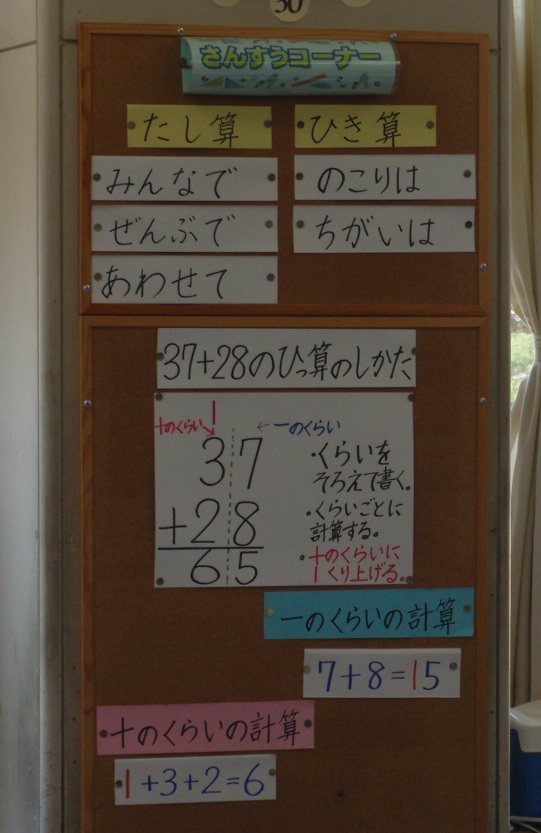 30
さんすうコーナー
たし算
ひき算
みんなで
のこりは
ぜんぶで
ちがいは
あわせて
37+28のひっ算のしかた
1
十のくらい↘
←一のくらい
37
+28
65
・くらいを
そろえて書く。
・くらいごとに
計算する。
・十のくらいに
1くり上げる。
一のくらいの計算
7+8=15
十のくらいの計算
1+3+2=6